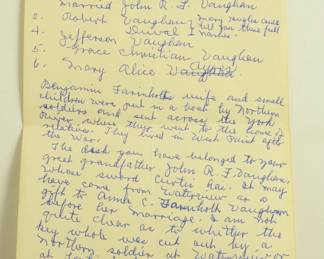 Married John R. F. Vaughan
2. Robert Vaughan
Mary Vaughan
tell you these full names.
4. Jefferson Duval Vaughan
5. Grace Christian Vaughan
6. Mary Alice Vaughan Ayres
Benjamin Farinholts wife and small
children were put in a boat by Northern
soldiers and sent across the York
River, where they went to the home of
relatives. They lived in West Point after
the War.
The desk you have belonged to your
great grandfather John R. F. Vaughan,
whose sword Curtis has. It may
have come from Waterview as a
gift to Anna C. Farinholt Vaughan
before her marriage. I am not
quite clear as to whether the
key whole was cut out by a
Northern soldier at Waterview or
at